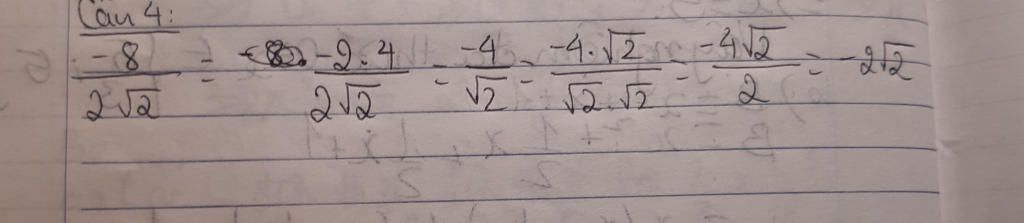 Câu 4:
-8/2√2 = -2.4/2√2 = -4/√2 = -4.√2/√2.√2 = -4√2/2 = -2√2